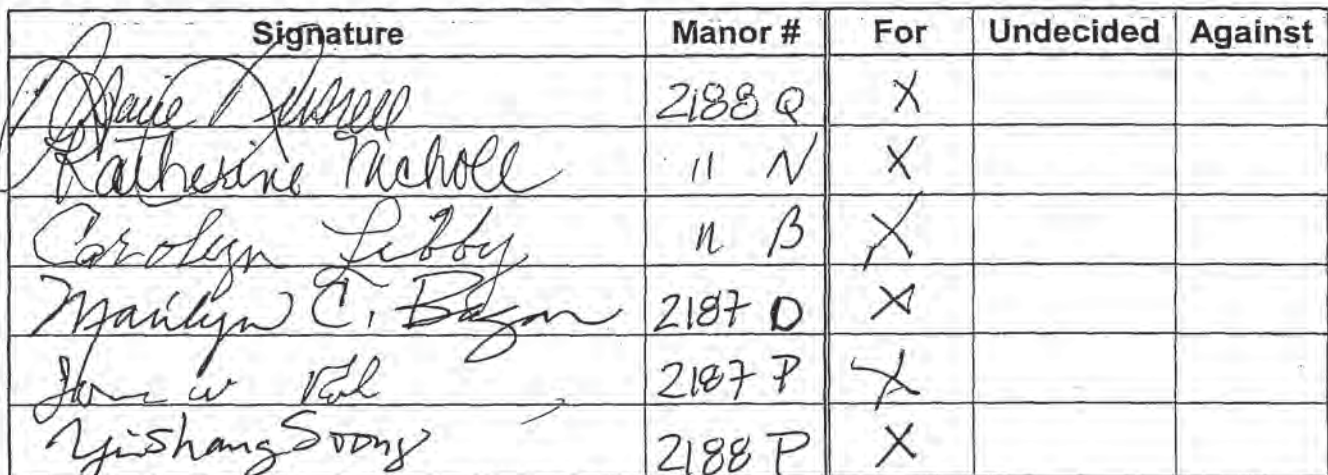 Signature Manor # For Undecided Against
Marie Russell 2188 Q X
Katherine Nicholl 11 N X
Carolyn Libby 11 B X
Marilyn C. Bazan 2187 D X
W 2187 P X
Yishang Soong 2188 P X